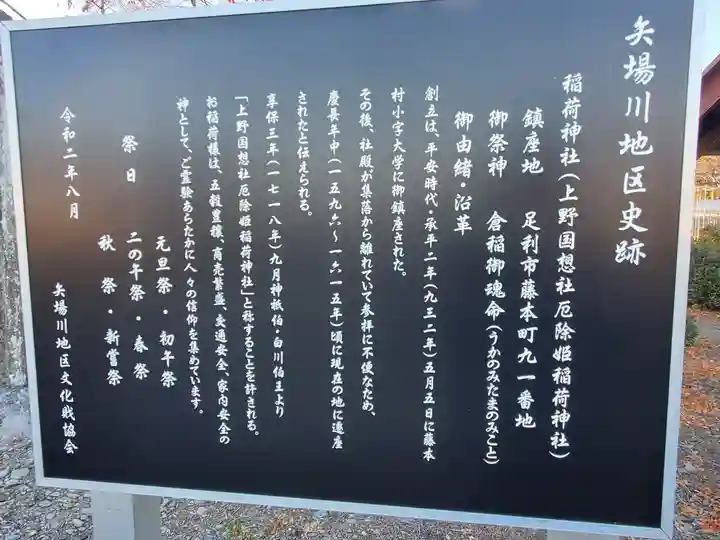 矢場川地区史跡
稲荷神社(上野国想社厄除姫稲荷神社)
鎮座地 足利市藤本町九一番地
御祭神 倉稲御魂命(うかのみたまのみこと)
御由緒・沿革
創立は、平安時代・承平二年(九三二年)五月五日に藤本
村小字大学に御鎮座された。
その後、社殿が集落から離れていて参拝に不便なため、
慶長年中(一五九六〜一六一五年)頃に現在の地に遷座
されたと伝えられる。
享保三年(一七一八年)九月神祇伯・白川伯王より
「上野国想社厄除姫稲荷神社」と称することを許される。
お稲荷様は、五穀豊穣、商売繁盛、交通安全、家内安全の
神として、ご霊験あらたかに人々の信仰を集めています。
祭日 元旦祭・初午祭
二の午祭・春祭
秋祭・新嘗祭
令和二年八月 矢場川地区文化戝協会